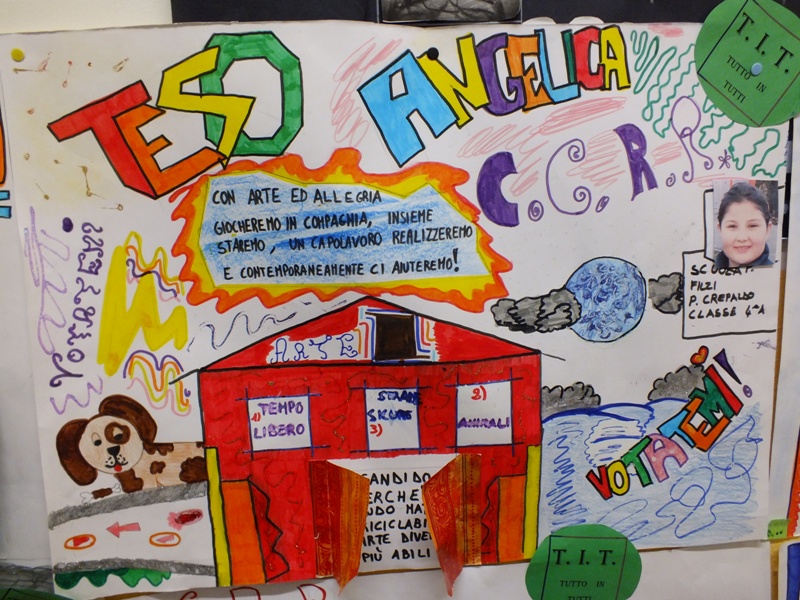 TESO ANGELICA
T. I. T.
TUTTO
IN
TUTTI
C.C.R.R*
CON ARTE ED ALLEGRIA
GIOCHEREMO IN COMPAGNIA, INSIEME
STAREMO, UN CAPOLAVORO REALIZZEREMO
E CONTEMPORANEAMENTE CI AIUTEREMO!
FILZI
P. CREPALDO
CLASSE 4ªA
ARTE
1) TEMPO
LIBERO
SKURE
3)
2)
ANIMALI
VOTATEMI!
ANDIDO
ERCHE
NDO MA
RICICLABI
ARTE DIVE
PIÙ ABILI
T. I. T.
TUTTO IN
TUTTI